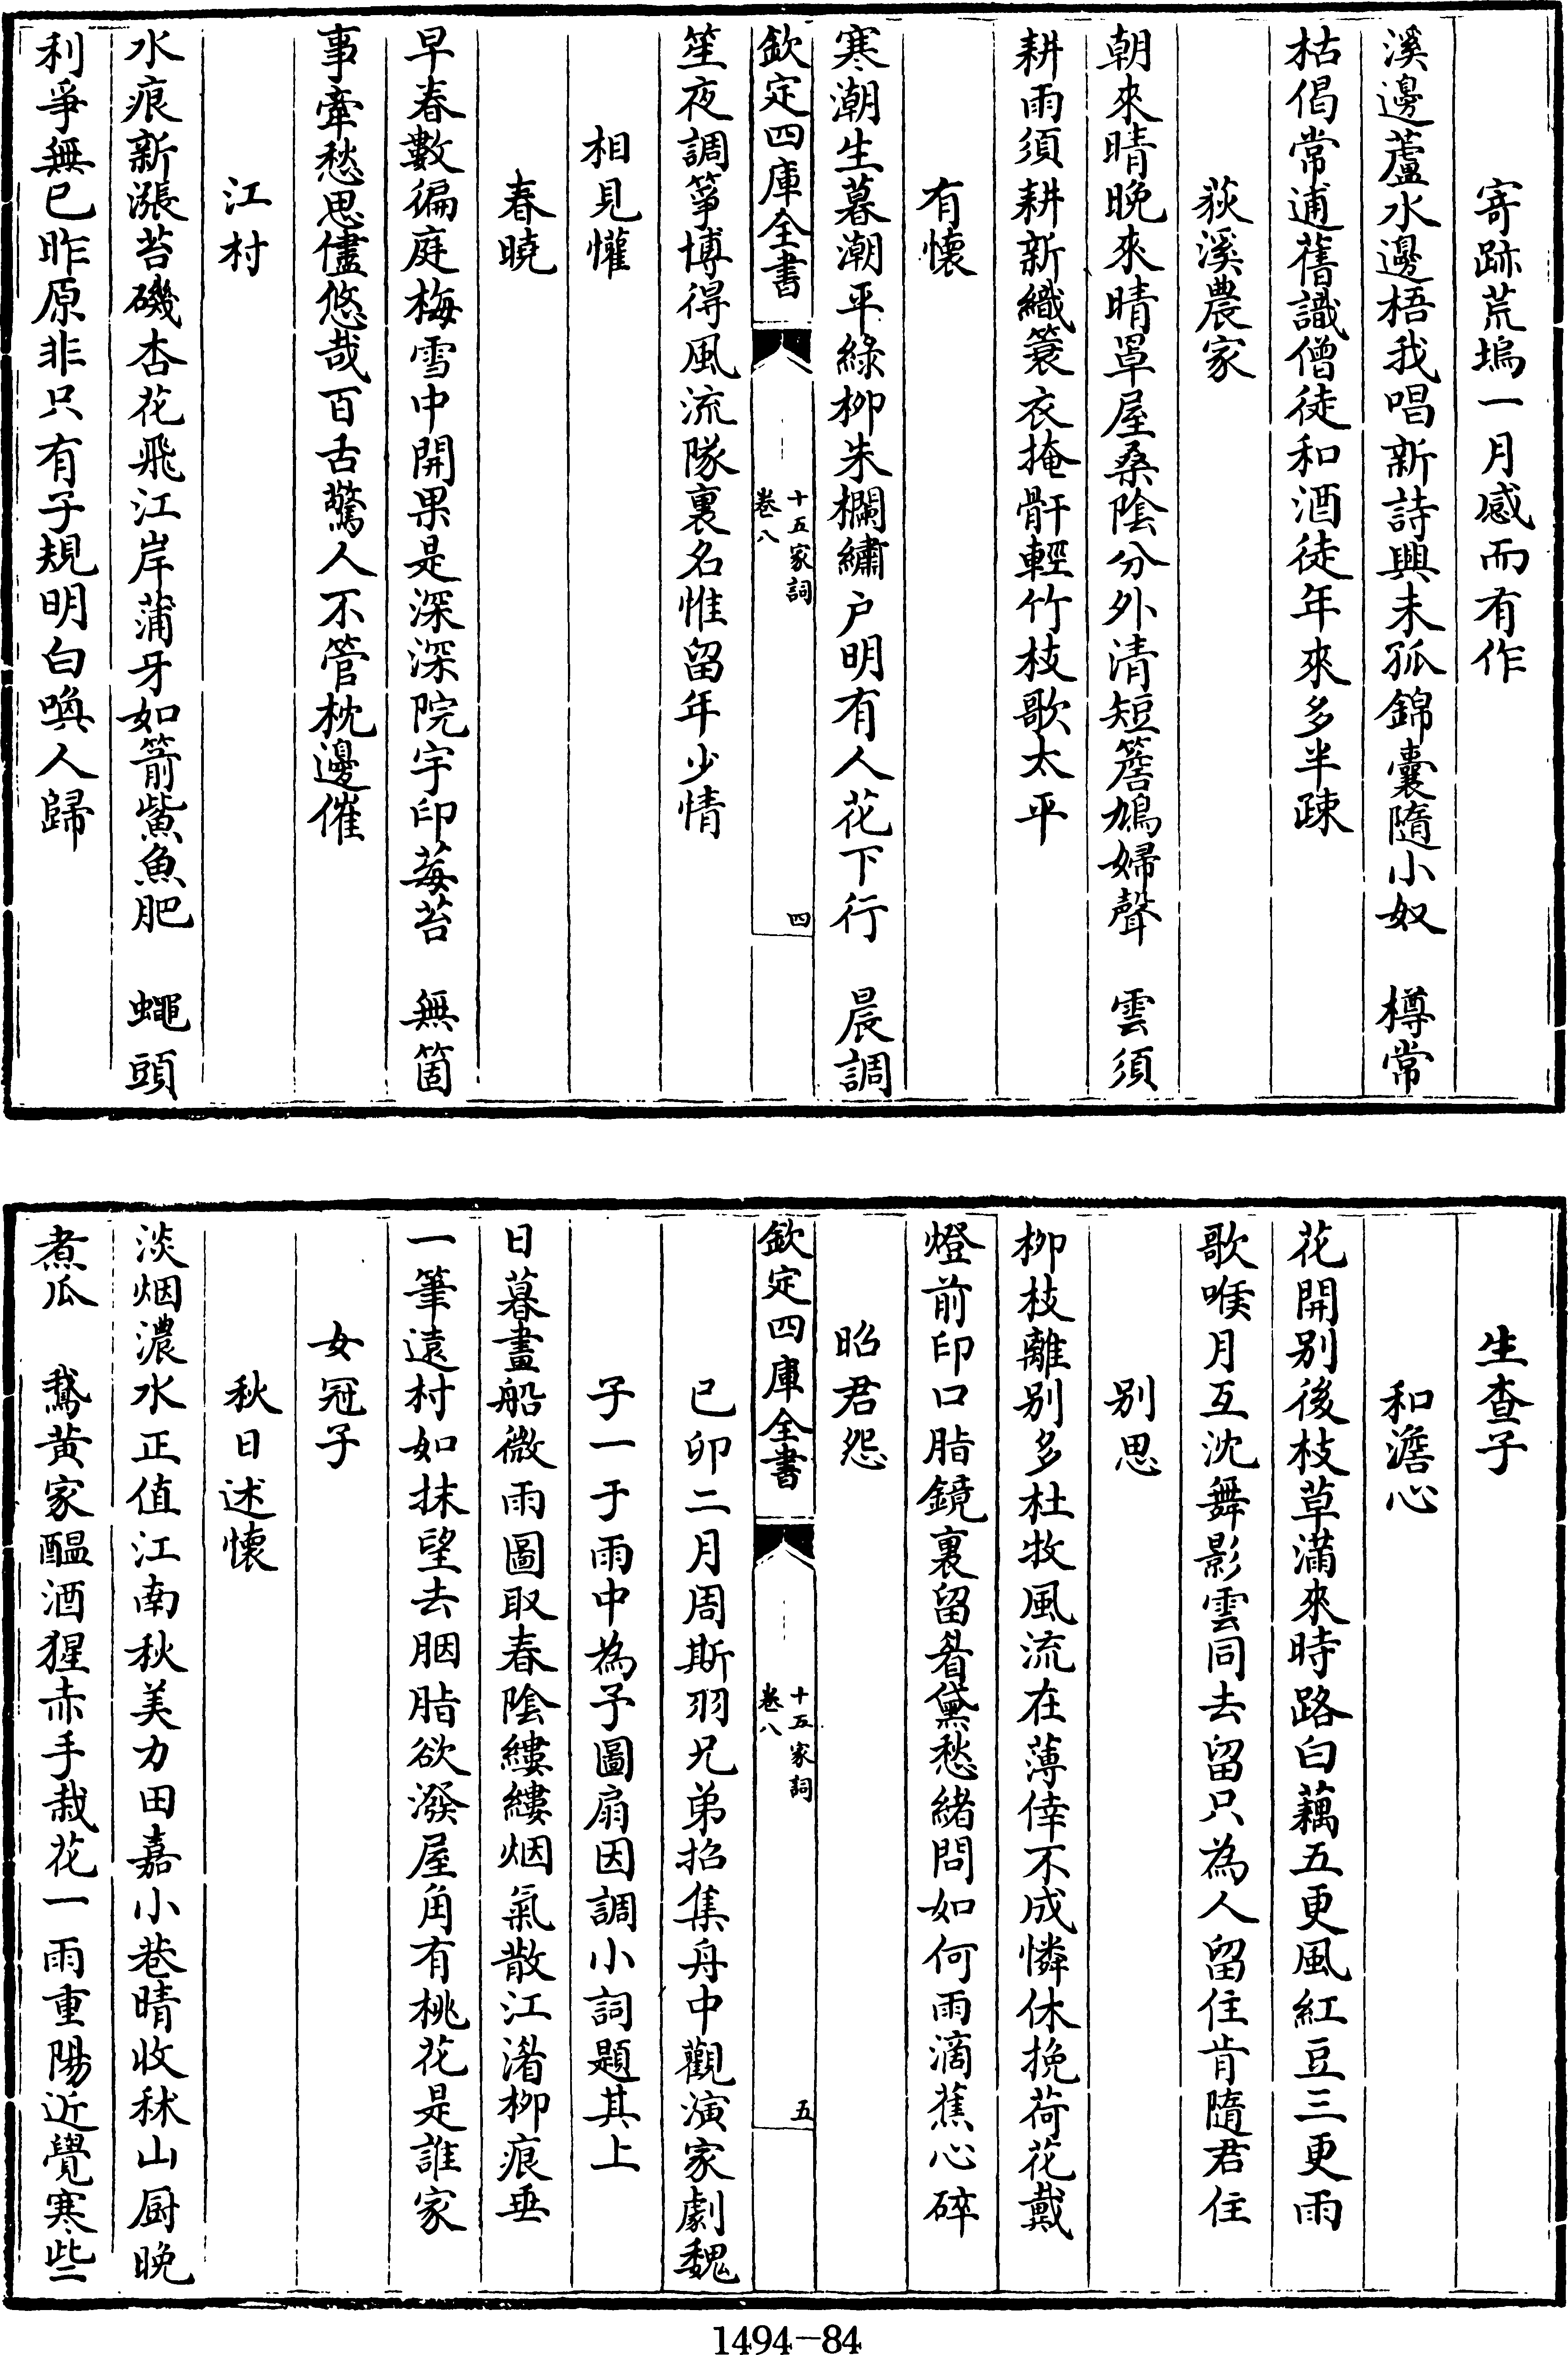 寄跡荒塢一月感而有作
溪邊蘆水邊梧我唱新詩興未孤錦囊隨小奴　樽常
枯偈常逋舊識僧徒和酒徒年來多半疎
荻溪農家
朝來晴晚來晴罩屋桑陰分外清短簷鳩婦聲　雲須
耕雨須耕新織簑衣掩骭輕竹枝歌太平
有懷
寒潮生暮潮平綠柳朱欄繡户明有人花下行　晨調
欽定四庫全書
十五家詞
卷八
四
笙夜調箏博得風流隊裏名惟留年少情
相見懽
春曉
早春數徧庭梅雪中開果是深深院宇印莓苔　無箇
事牽愁思儘悠哉百舌驚人不管枕邊催
江村
水痕新漲苔磯杏花飛江岸蒲牙如箭鮆魚肥　蠅頭
利爭無已昨原非只有子規明白喚人歸
生查子
和澹心
花開别後枝草滿來時路白藕五更風紅豆三更雨
歌喉月互沈舞影雲同去留只為人留住肯隨君住
别思
柳枝離别多杜牧風流在薄倖不成憐休挽荷花戴
燈前印口脂鏡裏留眉黛愁緒問如何雨滴蕉心碎
昭君怨
欽定四庫全書
十五家詞
卷八
五
已卯二月周斯羽兄弟招集舟中觀演家劇魏
子一于雨中為予圖扇因調小詞題其上
日暮畫船微雨圖取春陰縷縷烟氣散江渚柳痕垂
一筆遠村如抹望去胭脂欲潑屋角有桃花是誰家
女冠子
秋日述懷
淡烟濃水正值江南秋美力田嘉小巷晴收秫山厨晚
煮瓜　鵞黄家醖酒猩赤手栽花一雨重陽近覺寒些
1494-84